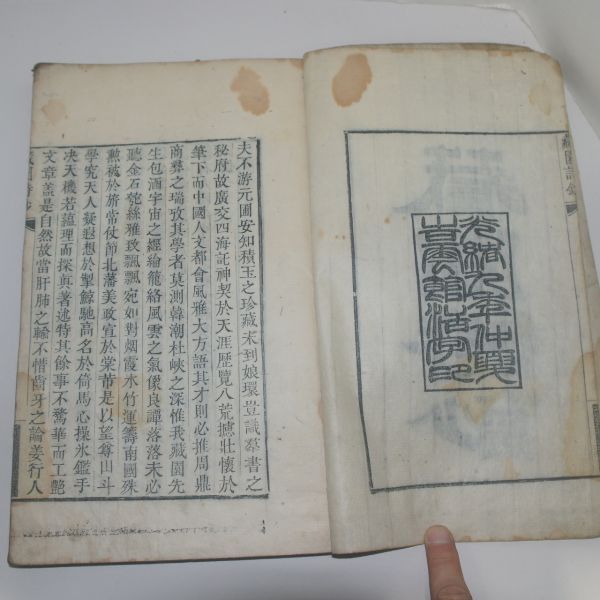 藏園詩鈔
光緒九年仲興
豈雲館活字印
夫不游元圃安知積玉之珍藏未到娘環豈識羣書之
秘府故廣交四海託神契於天涯歷覽八荒摅壯懷於
筆下而中國人文都會風雅大方語其才則必推周鼎
南彝之瑞攷其學者莫測韓潮杜峽之深惟我藏園先
生包酒宇宙之經綸籠絡風雲之氣儇良譚落落未必
聽金石竟絲雅致飄飄宛如對烟霞水竹運籌南國殊
勲被於旂常仗節北藩美政宣於棠芾是以望尊山斗
學究天人疑遐想於掣鯨馳高名於倚馬心操氷鑑手
决天機若蘊理而探眞著述特其餘事不驚華而工艶
文章盖是自然故當肝肺之輸不惜齒牙之論姜行人
藏園詩鈔